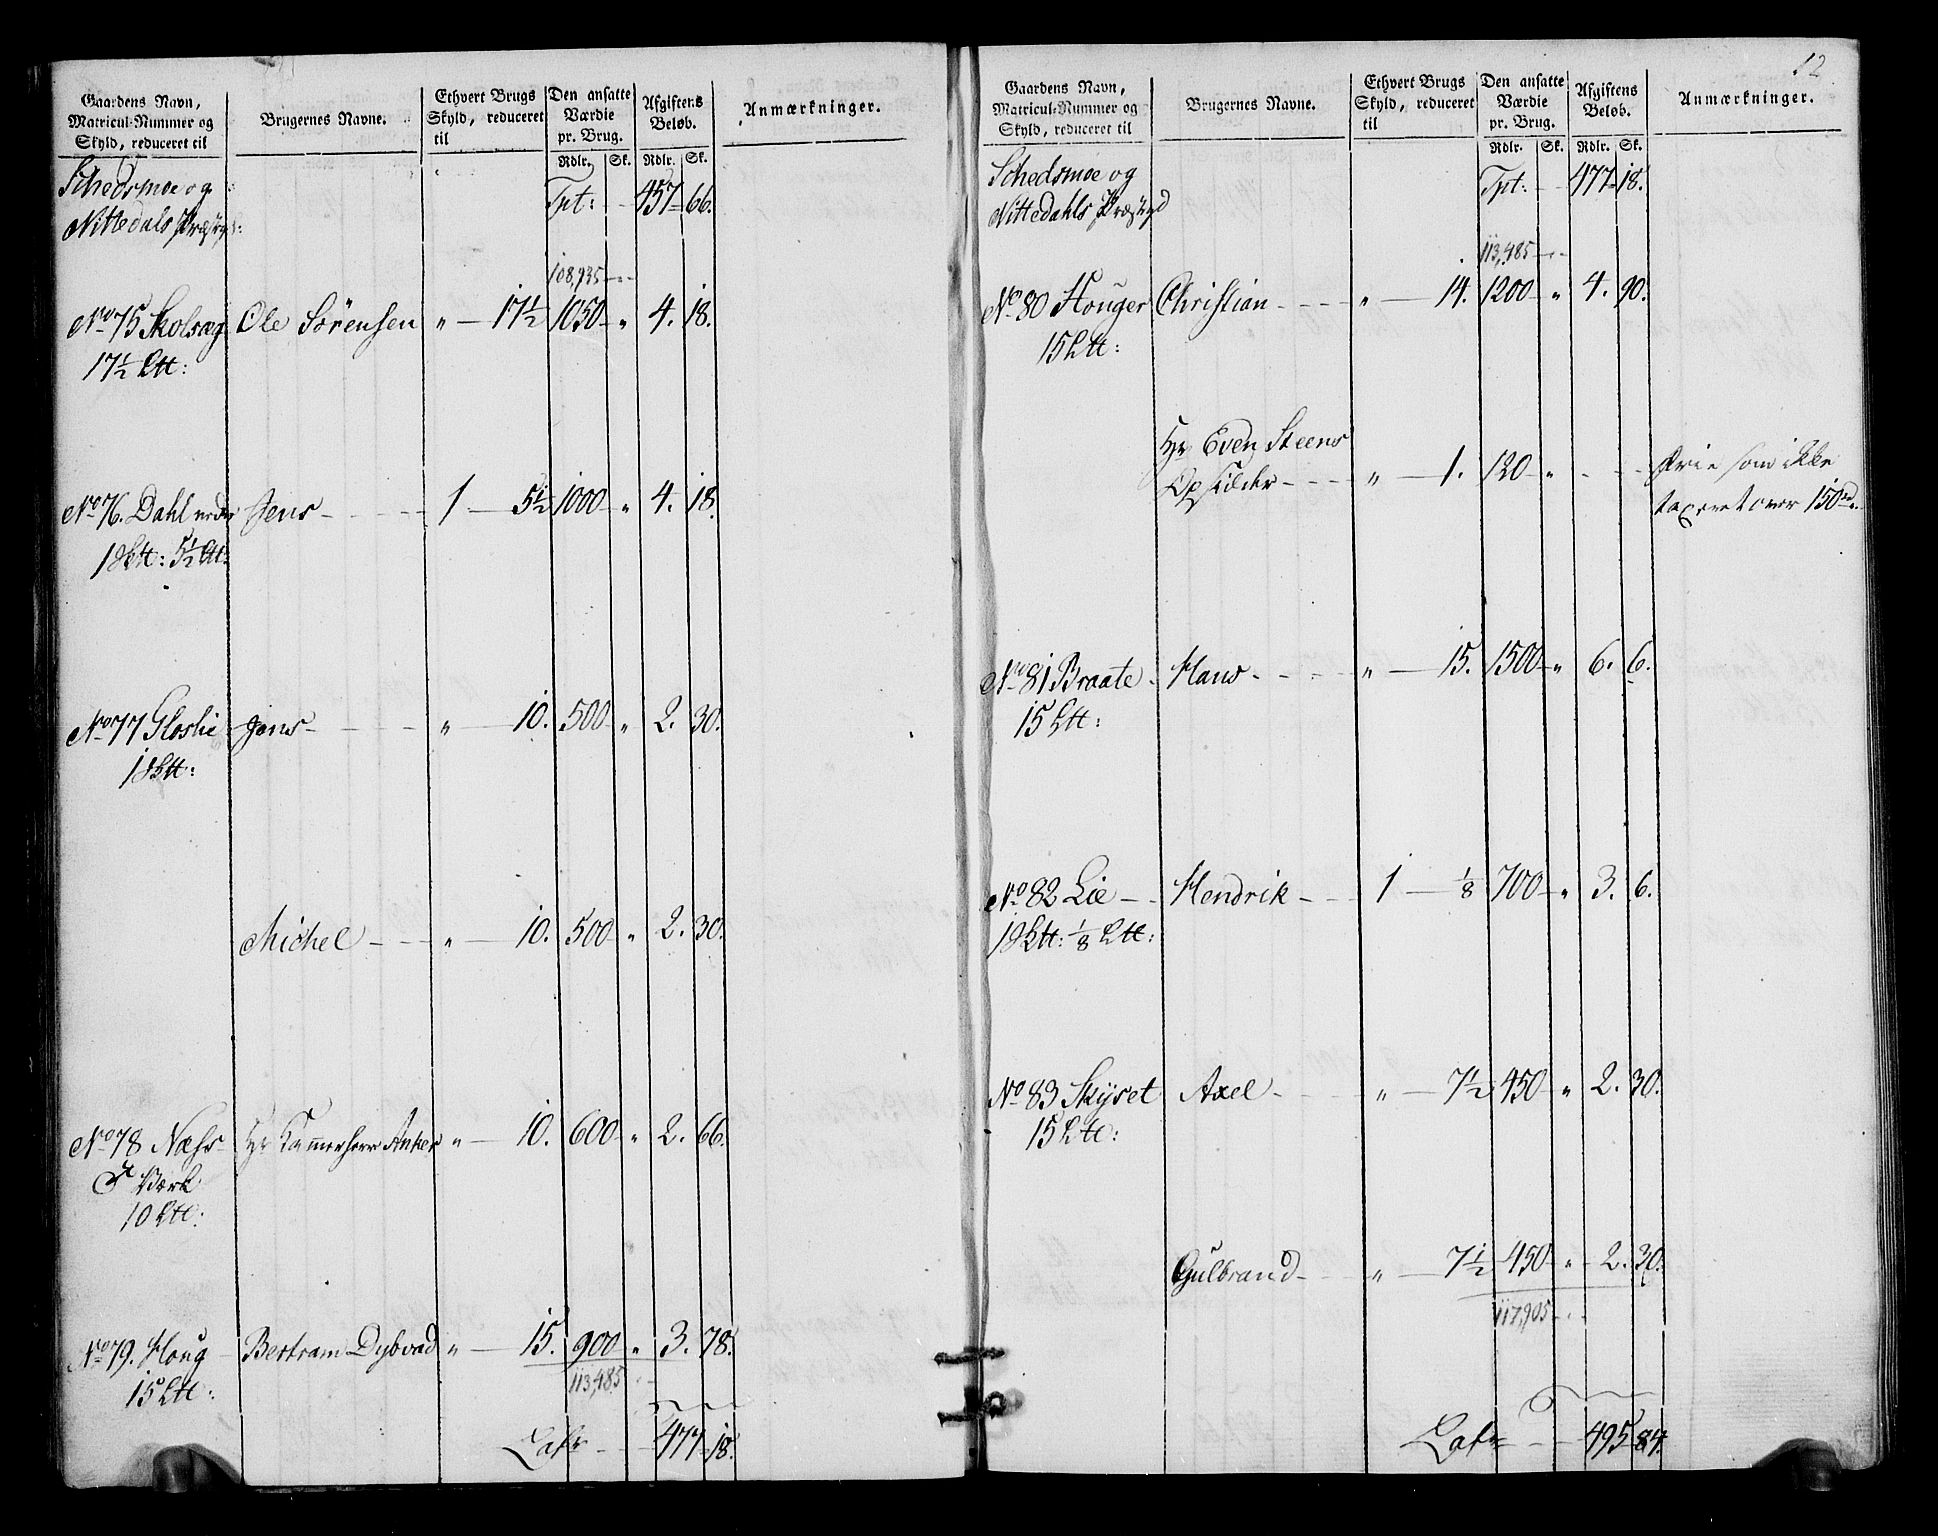 Gaardens Navn,
Matricul-Nummer og
Skyld, reduceret til
Brugernes Navne.
Ethvert Brugs
Skyld, reduceret
til
Den ansatte
Værdie
pr. Brug.
Rdlr. Sk.
Afgiftens
Beløb.
Rdlr. Sk.
Anmærkninger.
Schedsmoe og Tpt: 457 66.
Nittedals Præstg:
108,935
No 75 Skolsæg Ole Sörensen " 17½ 1050 " 4. 18.
17½ Ltt:
No 76. Dahl nedre Jens 1 5½ 1000 " 4. 18.
1 Sktt: 5½ Ltt:
No 77 Gloslie Jens " 10. 500 " 2. 30.
1 Sktt:
Michel " 10. 500 " 2. 30.
No 78 Næhs Hr Kammerherr Anker " 10. 600 " 2. 66.
J Værk
10 Ltt:
No 79. Houg Bertram Dybvad " 15. 900 " 3. 78.
15 Ltt:
113,485
Latr 477 18.
12
Gaardens Navn,
Matricul-Nummer og
Skyld, reduceret til
Brugernes Navne.
Ethvert Brugs
Skyld, reduceret
til
Den ansatte
Værdie
pr. Brug.
Rdlr. Sk.
Afgiftens
Beløb.
Rdlr. Sk.
Anmærkninger.
Schedsmoe og Tpt: 477 18.
Nittedahls Præstgd
113,485
No 80 Houger Christian " 14. 1200 " 4. 90.
15 Ltt:
Hr Even Steens
Opsidder " 1. 120 " Frie som ikke
taxeret over 150 rd.
No 81 Braate Hans " 15. 1500 " 6. 6.
15 Ltt:
No 82 Lie Hendrik 1 ⅛ 700 " 3. 6.
1 Sktt: ⅛ Ltt:
No 83 Skÿset Axel " 7½ 450 " 2. 30.
15 Ltt:
Gulbrand " 7½ 450 " 2. 30.
117,905
Latr 495 84.